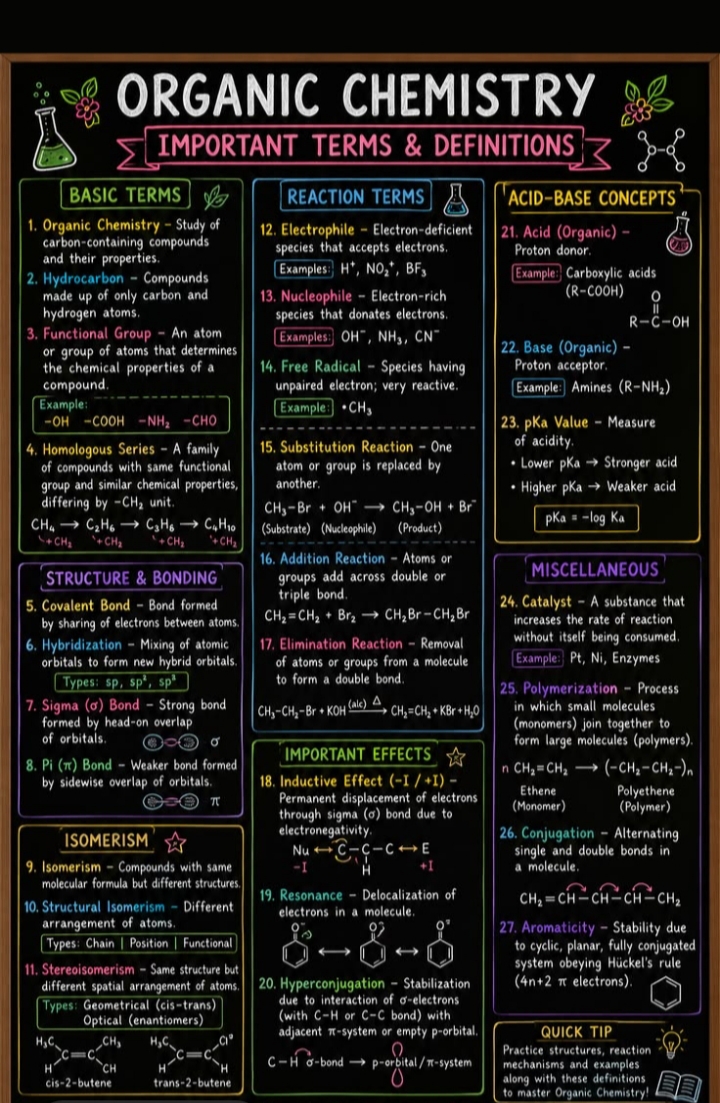 ORGANIC CHEMISTRY
IMPORTANT TERMS & DEFINITIONS
BASIC TERMS
1. Organic Chemistry – Study of
carbon-containing compounds
and their properties.
2. Hydrocarbon – Compounds
made up of only carbon and
hydrogen atoms.
3. Functional Group – An atom
or group of atoms that determines
the chemical properties of a
compound.
Example:
–OH –COOH –NH₂ –CHO
4. Homologous Series – A family
of compounds with same functional
group and similar chemical properties,
differing by –CH₂ unit.
CH₄ → C₂H₆ → C₃H₈ → C₄H₁₀
+CH₂ +CH₂ +CH₂ +CH₂
STRUCTURE & BONDING
5. Covalent Bond – Bond formed
by sharing of electrons between atoms.
6. Hybridization – Mixing of atomic
orbitals to form new hybrid orbitals.
Types: sp, sp², sp³
7. Sigma (σ) Bond – Strong bond
formed by head-on overlap
of orbitals.
σ
8. Pi (π) Bond – Weaker bond formed
by sidewise overlap of orbitals.
π
ISOMERISM
9. Isomerism – Compounds with same
molecular formula but different structures.
10. Structural Isomerism – Different
arrangement of atoms.
Types: Chain | Position | Functional
11. Stereoisomerism – Same structure but
different spatial arrangement of atoms.
Types: Geometrical (cis-trans)
Optical (enantiomers)
H₃C CH₃ H₃C
C=C C=C
H CH H H
cis-2-butene trans-2-butene
REACTION TERMS
12. Electrophile – Electron-deficient
species that accepts electrons.
Examples: H⁺, NO₂⁺, BF₃
13. Nucleophile – Electron-rich
species that donates electrons.
Examples: OH⁻, NH₃, CN⁻
14. Free Radical – Species having
unpaired electron; very reactive.
Example: •CH₃
15. Substitution Reaction – One
atom or group is replaced by
another.
CH₃–Br + OH⁻ → CH₃–OH + Br⁻
(Substrate) (Nucleophile) (Product)
16. Addition Reaction – Atoms or
groups add across double or
triple bond.
CH₂=CH₂ + Br₂ → CH₂Br–CH₂Br
17. Elimination Reaction – Removal
of atoms or groups from a molecule
to form a double bond.
CH₃–CH₂–Br + KOH (alc) Δ → CH₂=CH₂ + KBr + H₂O
IMPORTANT EFFECTS
18. Inductive Effect (–I / +I) –
Permanent displacement of electrons
through sigma (σ) bond due to
electronegativity.
Nu ↔ C – C – C ↔ E
–I H +I
19. Resonance – Delocalization of
electrons in a molecule.
O O O
↔ ↔
20. Hyperconjugation – Stabilization
due to interaction of σ-electrons
(with C–H or C–C bond) with
adjacent π-system or empty p-orbital.
C – H σ-bond → p-orbital/π-system
ACID-BASE CONCEPTS
21. Acid (Organic) –
Proton donor.
Example: Carboxylic acids
(R–COOH)
O
R–C–OH
22. Base (Organic) –
Proton acceptor.
Example: Amines (R–NH₂)
23. pKa Value – Measure
of acidity.
• Lower pKa → Stronger acid
• Higher pKa → Weaker acid
pKa = –log Ka
MISCELLANEOUS
24. Catalyst – A substance that
increases the rate of reaction
without itself being consumed.
Example: Pt, Ni, Enzymes
25. Polymerization – Process
in which small molecules
(monomers) join together to
form large molecules (polymers).
n CH₂=CH₂ → (–CH₂–CH₂–)n
Ethene Polyethene
(Monomer) (Polymer)
26. Conjugation – Alternating
single and double bonds in
a molecule.
CH₂=CH–CH–CH–CH₂
27. Aromaticity – Stability due
to cyclic, planar, fully conjugated
system obeying Hückel's rule
(4n+2 π electrons).
QUICK TIP
Practice structures, reaction
mechanisms and examples
along with these definitions
to master Organic Chemistry!